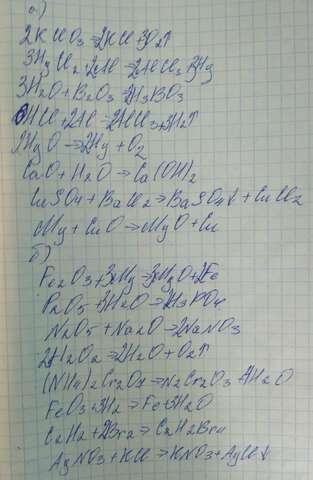 а.)
2KClO3=2KCl+3O2↑
3HgCl2+2Al=2AlCl3+3Hg
3H2O+B2O3=2H3BO3
6HCl+2Al=2AlCl3+3H2↑
2HgO→2Hg+O2
CaO+H2O→Ca(OH)2
CuSO4+BaCl2→BaSO4↓+CuCl2
Mg+CuO→MgO+Cu
б)
Fe2O3+3Mg→3MgO+2Fe
P2O5+3H2O→2H3PO4
N2O5+Na2O→2NaNO3
2H2O2→2H2O+O2↑
(NH4)2Cr2O7→N2Cr2O3+4H2O
FeO3+3H2→Fe+3H2O
C2H2+2Br2→C2H2Br4
AgNO3+KCl→KNO3+AgCl↓